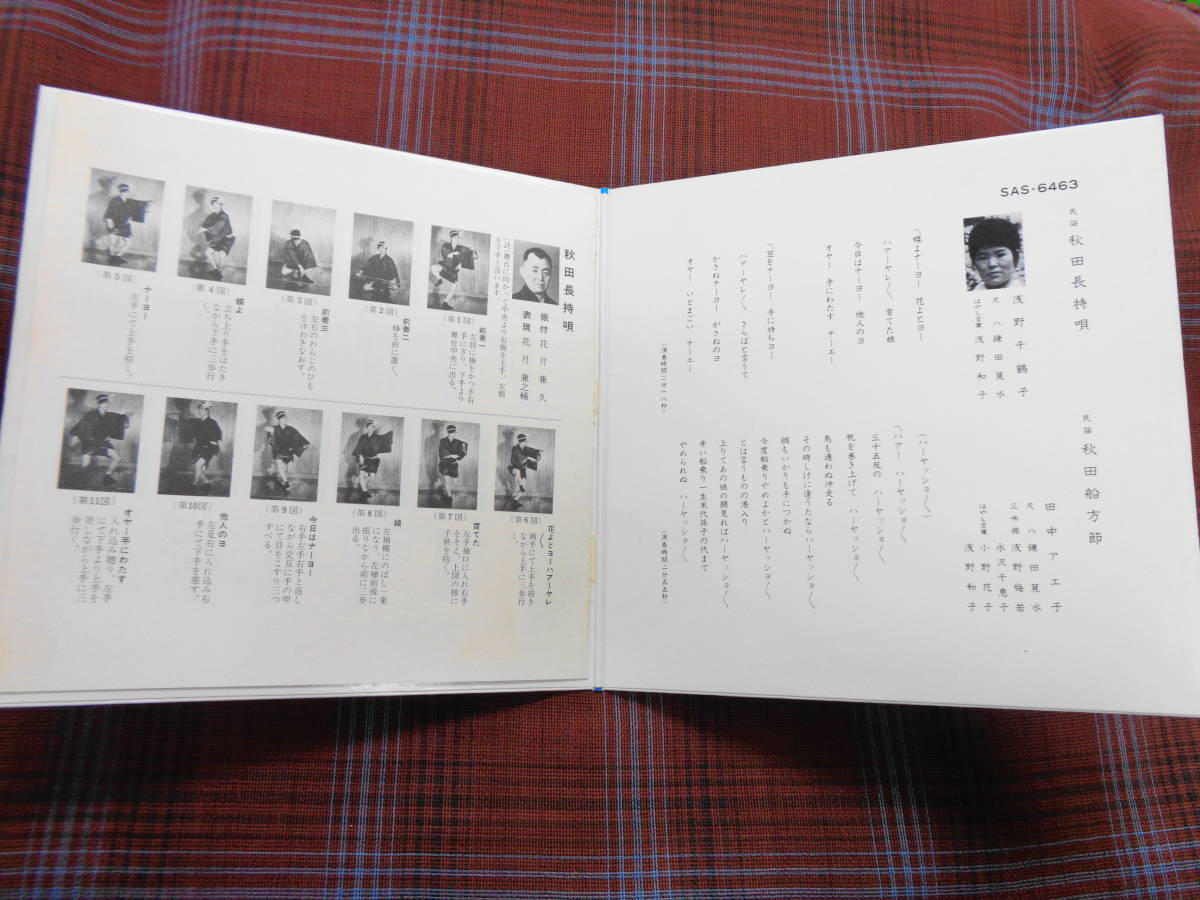 SAS-6463
民謡 秋田長持唄
浅野千鶴子
尺八 鎌田筧水
はやし言葉 浅野和子
〽蝶よナーヨー 花よとヨー
ハアーヤレ〳〵 育てた娘
今日はナーヨー 他人のヨ
オヤー 手にわたす ナーエー
〽笠をナーヨー 手に持ちヨー
ハアーヤレ〳〵 さらばと言うて
かさねナーヨー がさねのヨ
オヤー いとまごい ナーエー
(演奏時間二分一八秒)
民謡 秋田船方節
田中アエ子
尺八 鎌田筧水
三味線 浅野梅若
永沢千恵子
小野花子
はやし言葉 浅野和子
(ハーヤッショ〳〵)
〽ハアー ハーヤッショ〳〵
三十五反の ハーヤッショ〳〵
帆を巻き上げて ハーヤッショ〳〵
鳥も通わぬ沖走る
その時しけに逢うたなら ハーヤッショ〳〵
綱もいかりも手につかぬ
今度船乗りやめよかと ハーヤッショ〳〵
とは言うものの港入り
上りてあの娘の顔見れば ハーヤッショ〳〵
辛い船乗り一生末代孫子の代まで
やめられぬ ハーヤッショ〳〵
(演奏時間二分五五秒)
秋田長持唄
振付 花月兼久
表現 花月兼之輔
(註)舞台に向かって中央より右側を上手、左側
を下手と言います。
(第1図)
前奏一
左肩に棒をかつぎ右
手にぎり、下手より
舞台中央に出る。
(第2図)
前奏二
棒を前に置く。
(第3図)
前奏三
左右のわらじのひも
をゆわきなおす。
(第4図)
蝶よ
立ち上り手をはたき
ながら下手に三歩行
く。
(第5図)
ナーヨー
左手にて上手を招く。
(第6図)
花よとヨーハアーヤレ
両手にて上手を招き
ながら上手に三歩行
く。
(第7図)
育てた
左手袖口に入れ右手
をそえ、上図の様に
子供を抱く。
(第8図)
娘
左袖横にのばし一束
になり、左袖前後に
振りながら前に三歩
出る。
(第9図)
今日はナーヨー
右手左手右手と返し
ながら交互に手の甲
にて目をこすり三つ
すべる。
(第10図)
他人のヨ
左足右に入れ込み右
手にて下手を差す。
(第11図)
オヤー手にわたす
入れ込み廻り、左手
にて下手より上手を
差しながら上手に三
歩行く。